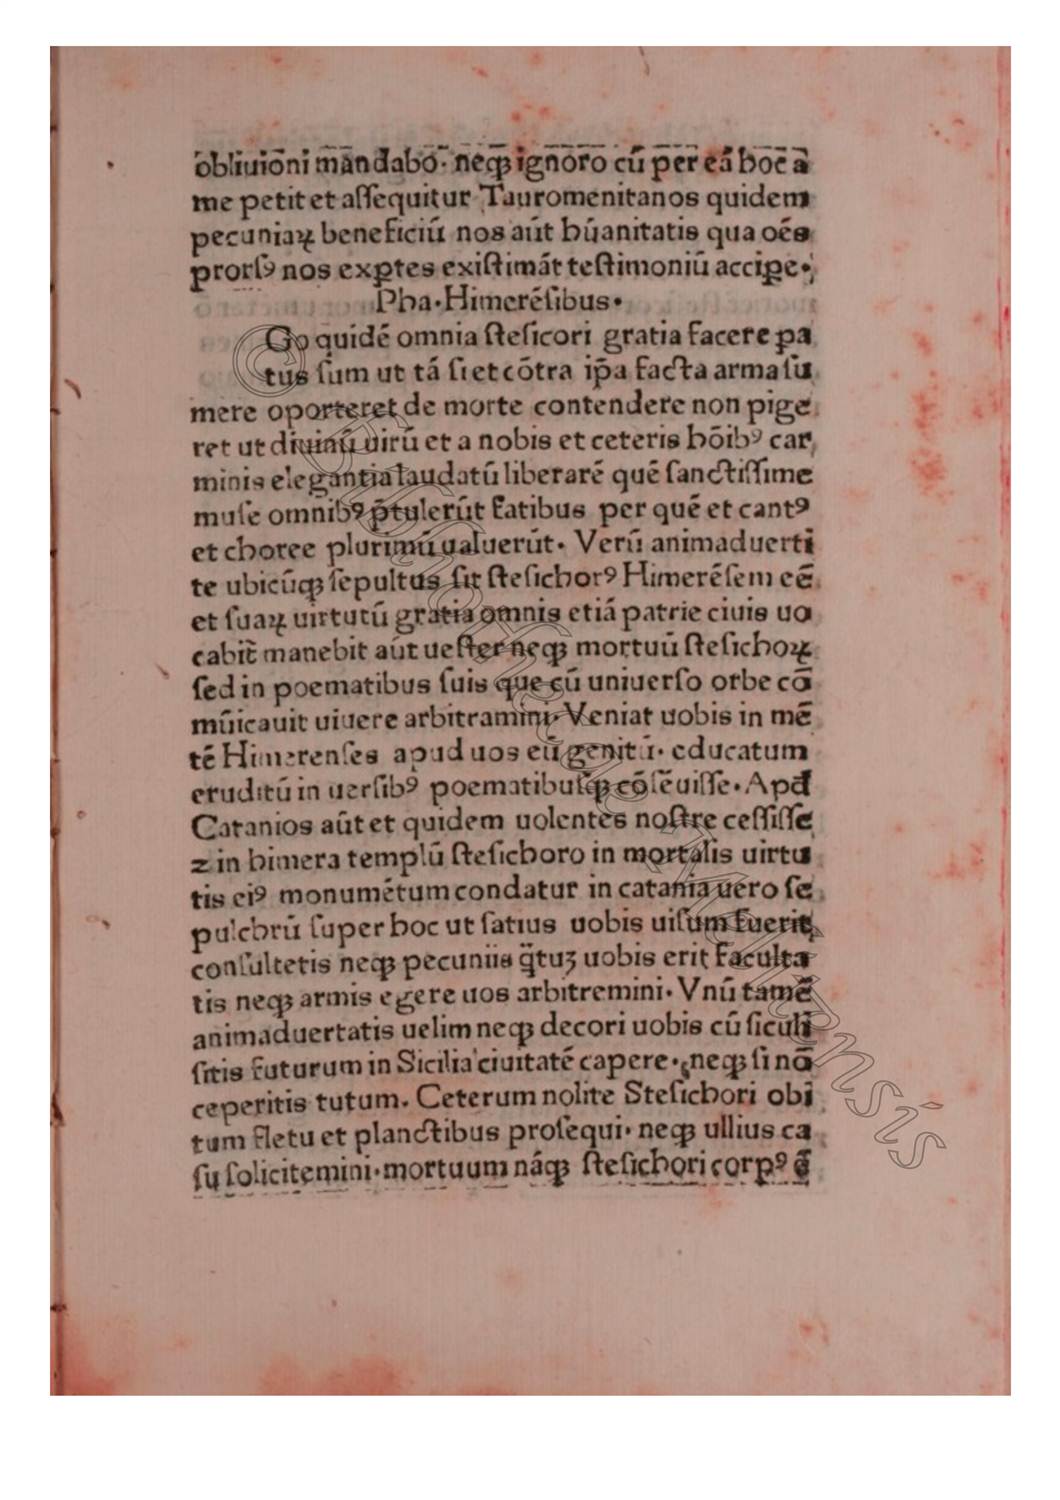 obliuioni mandabo· neqꝫ ignoro cū per eā hoc a
me petit et aſſequitur Tauromenitanos quidem
pecuniaꝝ beneficiū nos aūt hūanitatis qua oēs
prorſꝰ nos exꝑtes exiſtimāt teſtimoniū acciꝑe·
Pha·Himerēſibus·
Go quidē omnia ſteſicori gratia facere pa
tus ſum ut tā ſi et cōtra ip̄a facta arma ſu
mere oporteret de morte contendere non pige
ret ut diuinū uirū et a nobis et ceteris hōibꝰ car
minis elegantia laudatū liberarē quē ſanctiſſime
muſe omnibꝰ p̄tulerūt fatibus per quē et cantꝰ
et choree plurimū ualuerūt· Verū animaduerti
te ubicūqꝫ ſepultus ſit ſteſichorꝰ Himerēſem eē
et ſuaꝝ uirtutū gratia omnis etiā patrie ciuis uo
cabit̄ manebit aūt ueſter neqꝫ mortuū ſteſichoꝝ
ſed in poematibus ſuis que cū uniuerſo orbe cō
mūicauit uiuere arbitramini· Veniat uobis in mē
tē Himerenſes apud uos eū genitū· educatum
eruditū in uerſibꝰ poematibuſqꝫ cōſēuiſſe· Apđ
Catanios aūt et quidem uolentes noſtre ceſſiſſe
ꝛ in himera templū ſteſichoro in mortalis uirtu
tis eiꝰ monumētum condatur in catania uero ſe
pulchrū ſuper hoc ut ſatius uobis uiſum fuerit
conſultetis neqꝫ pecuniis q̄tuꝫ uobis erit faculta
tis neqꝫ armis egere uos arbitremini· Vnū tamē
animaduertatis uelim neqꝫ decori uobis cū ſiculi
ſitis futurum in Sicilia ciuitatē capere· neqꝫ ſi nō
ceperitis tutum. Ceterum nolite Steſichori obi
tum fletu et planctibus proſequi· neqꝫ ullius ca
ſu ſolicitemini· mortuum nāqꝫ ſteſichori corpꝰ ē
© Bibliotheca Vallicelliana